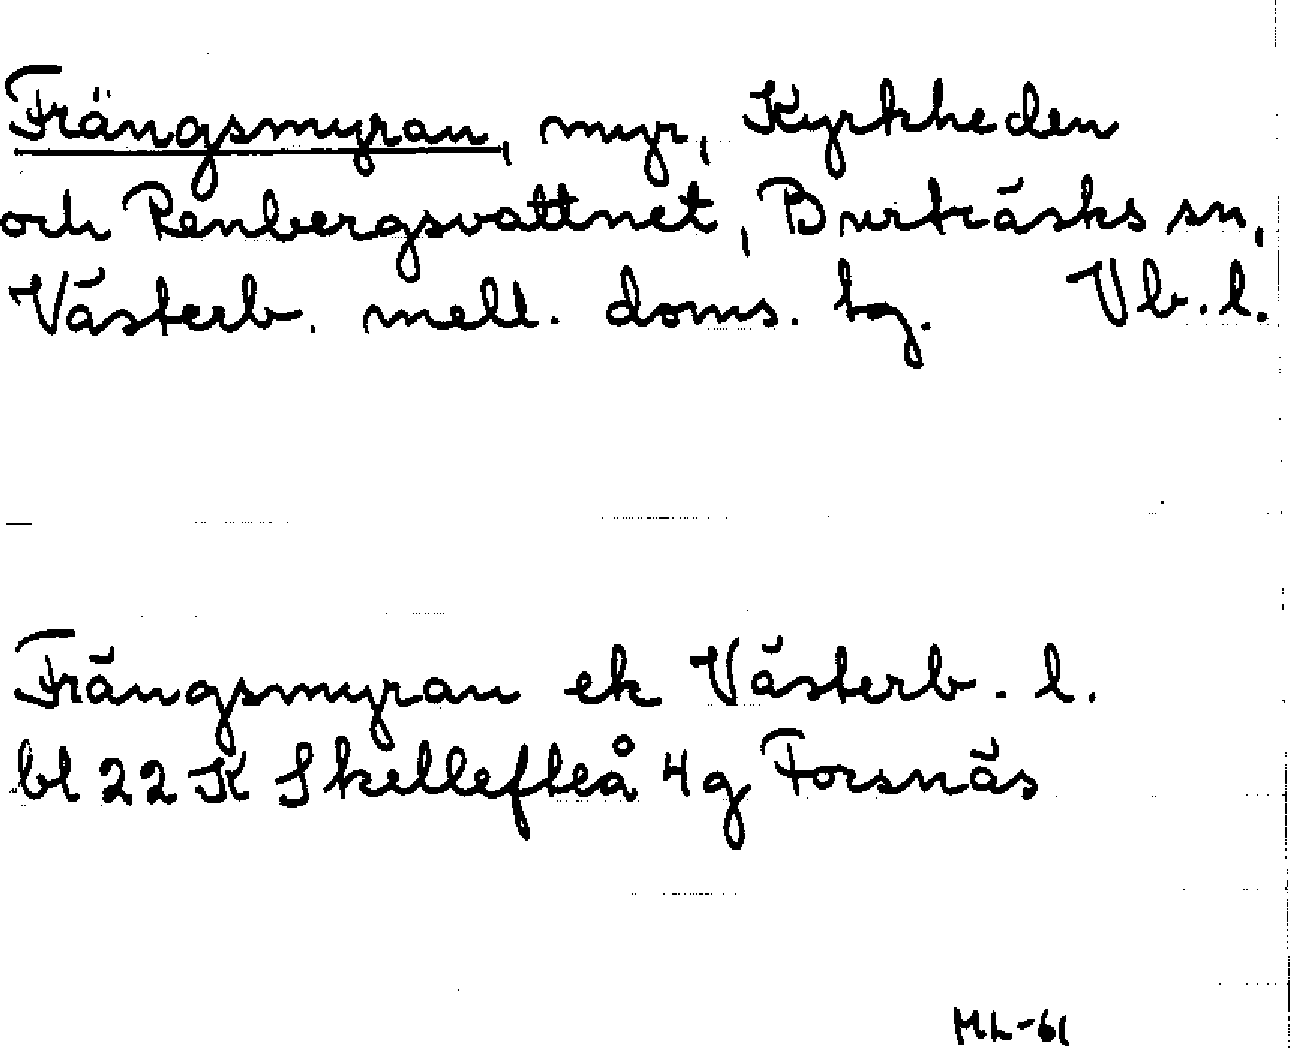 Frängsmyran, myr, Kyrkheden
och Renbergsvattnet, Burträsks sn,
Västerb. mell. doms. tg. Vb. l.
Frängsmyran ek Västerb. l.
bl 22 K Skellefteå 4g Forsnäs
ML-61